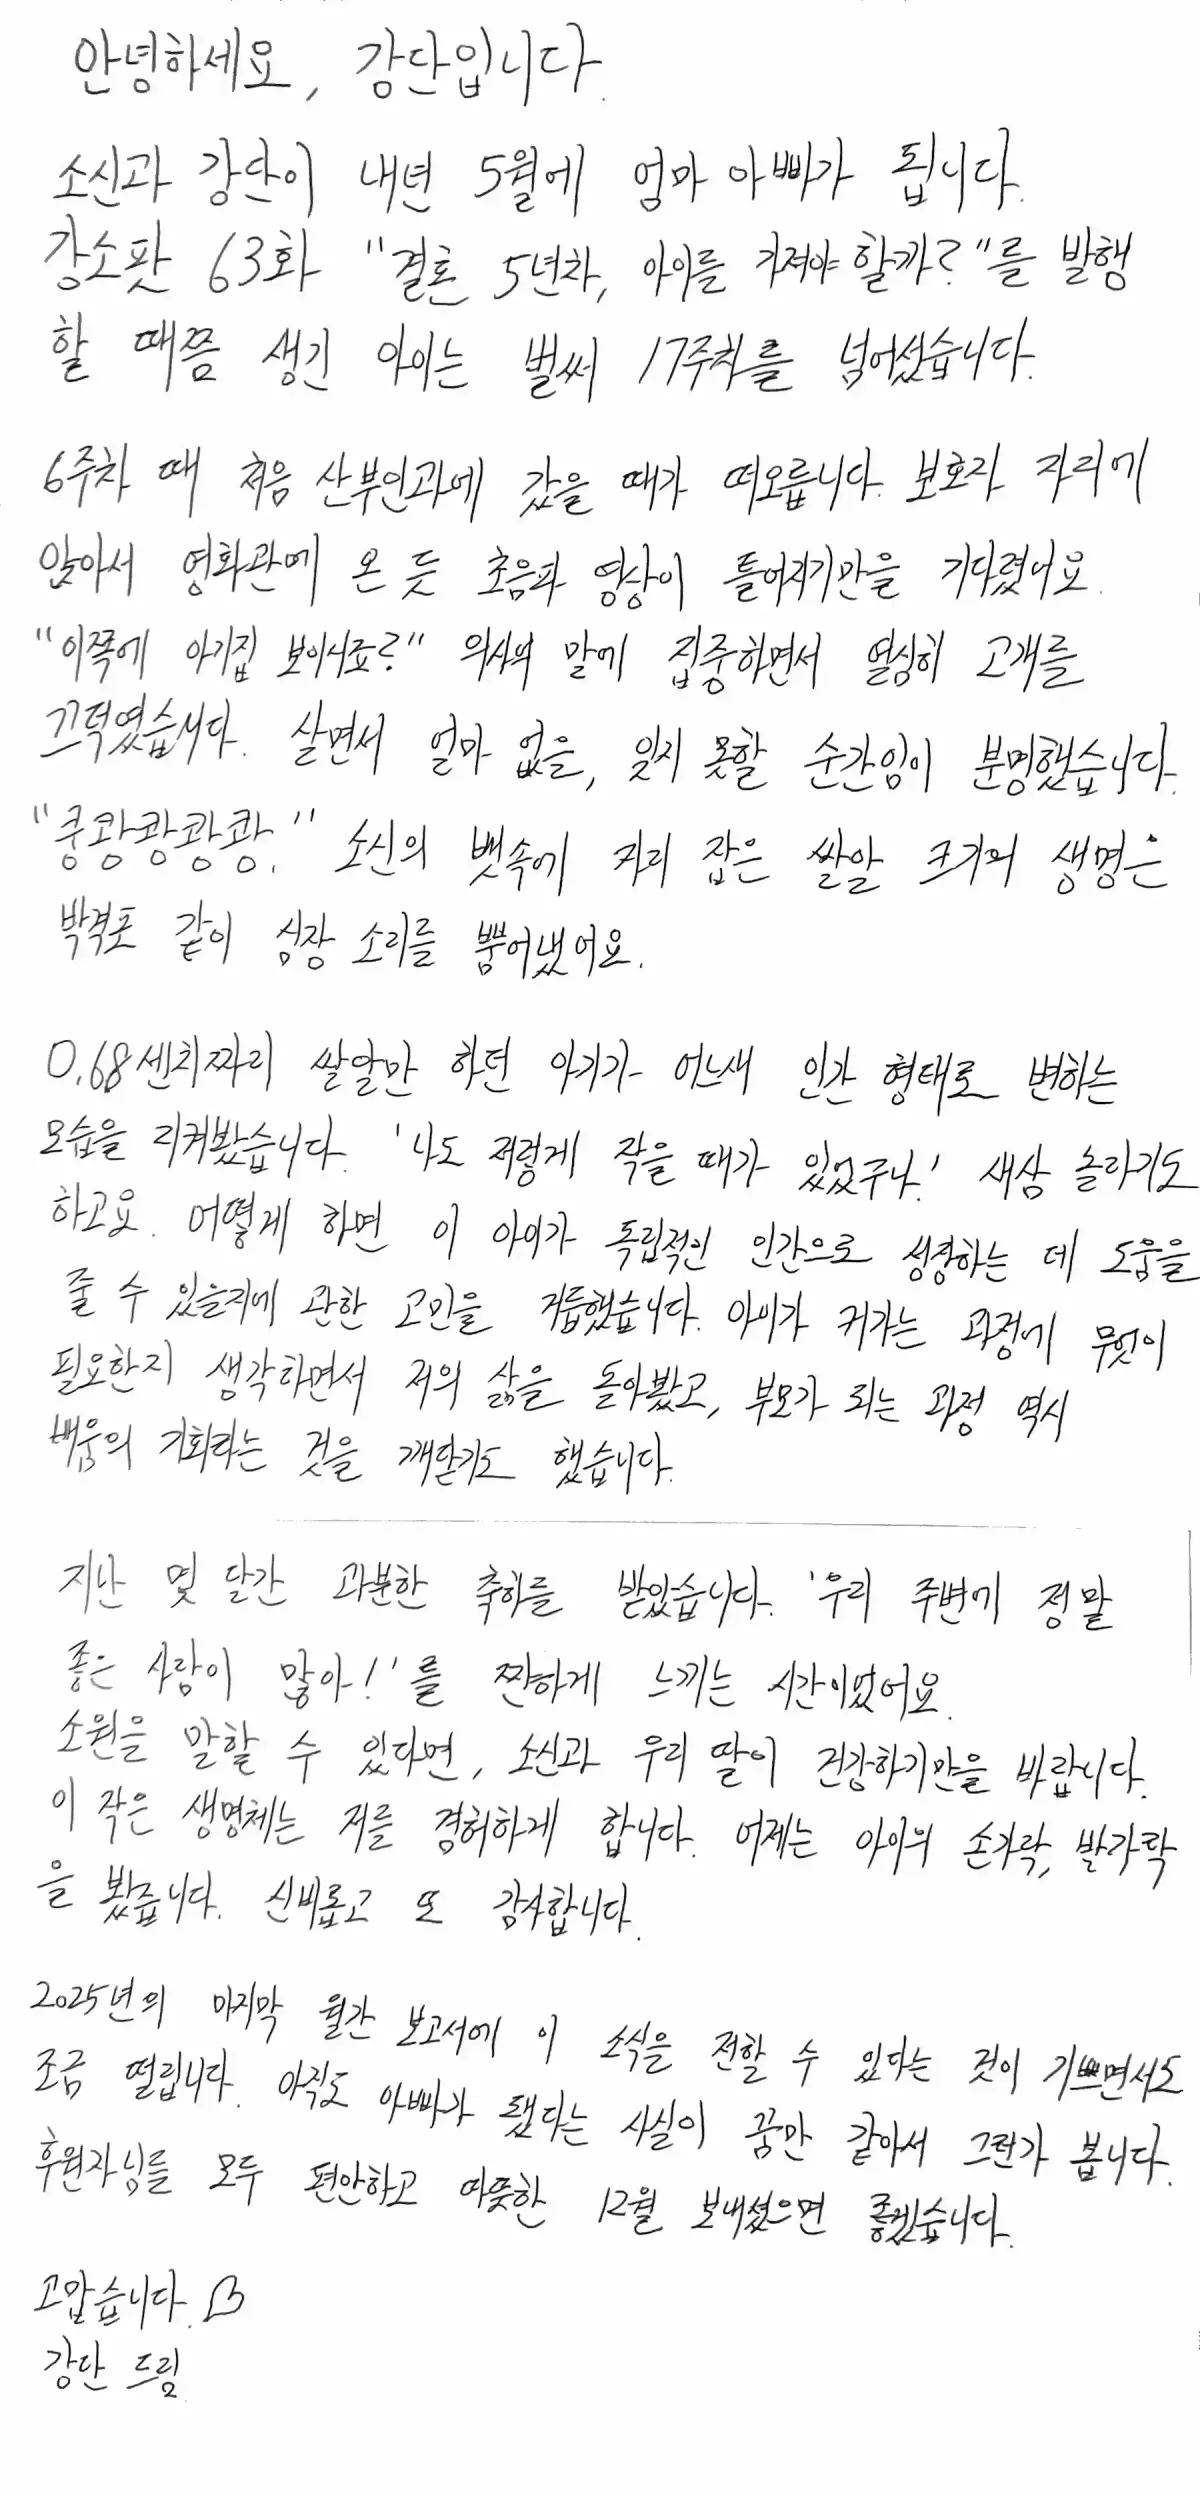 안녕하세요, 강단입니다.
소신과 강단이 내년 5월에 엄마 아빠가 됩니다.
강소팟 63화 "결혼 5년차, 아이를 가져야 할까?"를 발행
할 때쯤 생긴 아이는 벌써 17주차를 넘어섰습니다.
6주차 때 처음 산부인과에 갔을 때가 떠오릅니다. 보호자 자리에
앉아서 영화관에 온 듯 초음파 영상이 틀어지기만을 기다렸어요.
"이쪽에 아기집 보이시죠?" 의사의 말에 집중하면서 열심히 고개를
끄덕였습니다. 살면서 얼마 없을, 잊지 못할 순간임이 분명했습니다.
"쿵쾅쾅쾅쾅." 소신의 뱃속에 자리 잡은 쌀알 크기의 생명은
박격포 같이 심장 소리를 뿜어냈어요.
0.68센치짜리 쌀알만 하던 아기가 어느새 인간 형태로 변하는
모습을 지켜봤습니다. '나도 저렇게 작을 때가 있었구나!' 새삼 놀라기도
하고요. 어떻게 하면 이 아이가 독립적인 인간으로 성장하는 데 도움을
줄 수 있을지에 관한 고민을 거듭했습니다. 아이가 커가는 과정에 무엇이
필요한지 생각하면서 저의 삶을 돌아봤고, 부모가 되는 과정 역시
배움의 기회라는 것을 깨닫기도 했습니다.
지난 몇 달간 과분한 축하를 받았습니다. '우리 주변에 정말
좋은 사람이 많아!'를 찐하게 느끼는 시간이었어요.
소원을 말할 수 있다면, 소신과 우리 딸이 건강하기만을 바랍니다.
이 작은 생명체는 저를 겸허하게 합니다. 어제는 아이의 손가락, 발가락
을 봤습니다. 신비롭고 또 감사합니다.
2025년의 마지막 월간 보고서에 이 소식을 전할 수 있다는 것이 기쁘면서도
조금 떨립니다. 아직도 아빠가 됐다는 사실이 꿈만 같아서 그런가 봅니다.
후원자님들 모두 편안하고 따뜻한 12월 보내셨으면 좋겠습니다.
고맙습니다. ♡
강단 드림